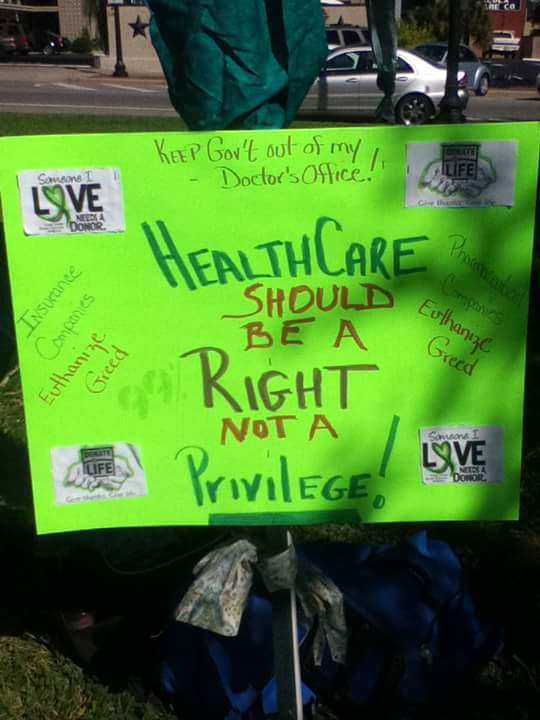 KEEP Gov't out of my
- Doctor's Office!
Someone I
LOVE
NEEDS A
DONOR.
DONATE
LIFE
Give thanks. Give life.
HEALTHCARE
SHOULD
BE A
RIGHT
NOT A
PRIVILEGE!
Insurance
Companies
Euthanize
Greed
Pharmaceutical
Companies
Euthanize
Greed
99%
DONATE
LIFE
Give thanks. Give life.
Someone I
LOVE
NEEDS A
DONOR.